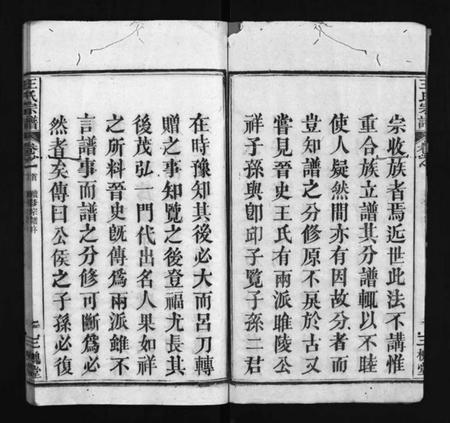 宗收族者焉近世此法不講惟
重合族立譜其分譜輒以不睦
使人疑然間亦有因故分者而
豈知譜之分修原不戾於古又
嘗見晉史王氏有兩派雎陵公
祥子孫與卽邱子覽子孫二君
在時豫知其後必大而呂刀轉
贈之事知覽之後登福尤長其
後茂弘一門代出名人果如祥
之所料晉史旣傳爲兩派雖不
言譜事而譜之分修可斷爲必
然者矣傳曰公侯之子孫必復
王氏宗譜
卷之一
三槐堂
王氏宗譜
卷之一
三槐堂